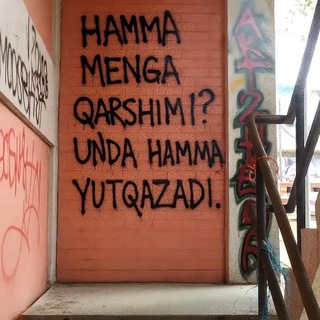 HAMMA
MENGA
QARSHIMI?
UNDA HAMMA
YUTQAZADI.